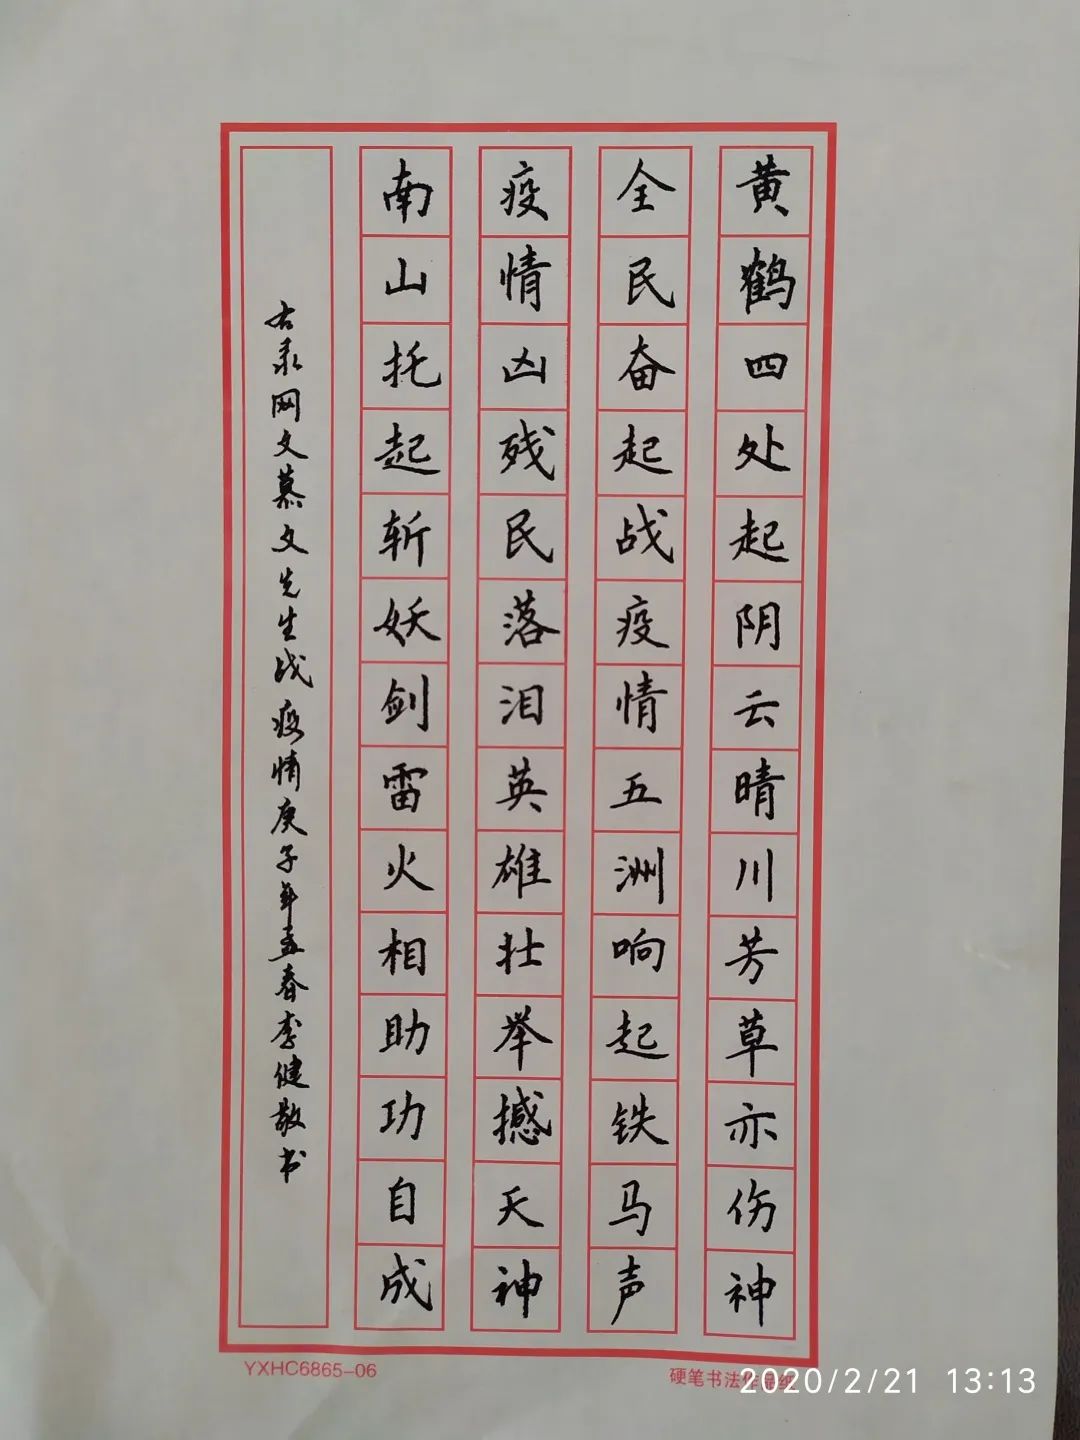 黄鹤四处起阴云晴川芳草亦伤神
全民奋起战疫情五洲响起铁马声
疫情凶残民落泪英雄壮举撼天神
南山托起斩妖剑雷火相助功自成
右录网文慕文先生战疫情庚子年孟春李健敬书
YXHC6865-06
硬笔书法作品纸
2020/2/21 13:13